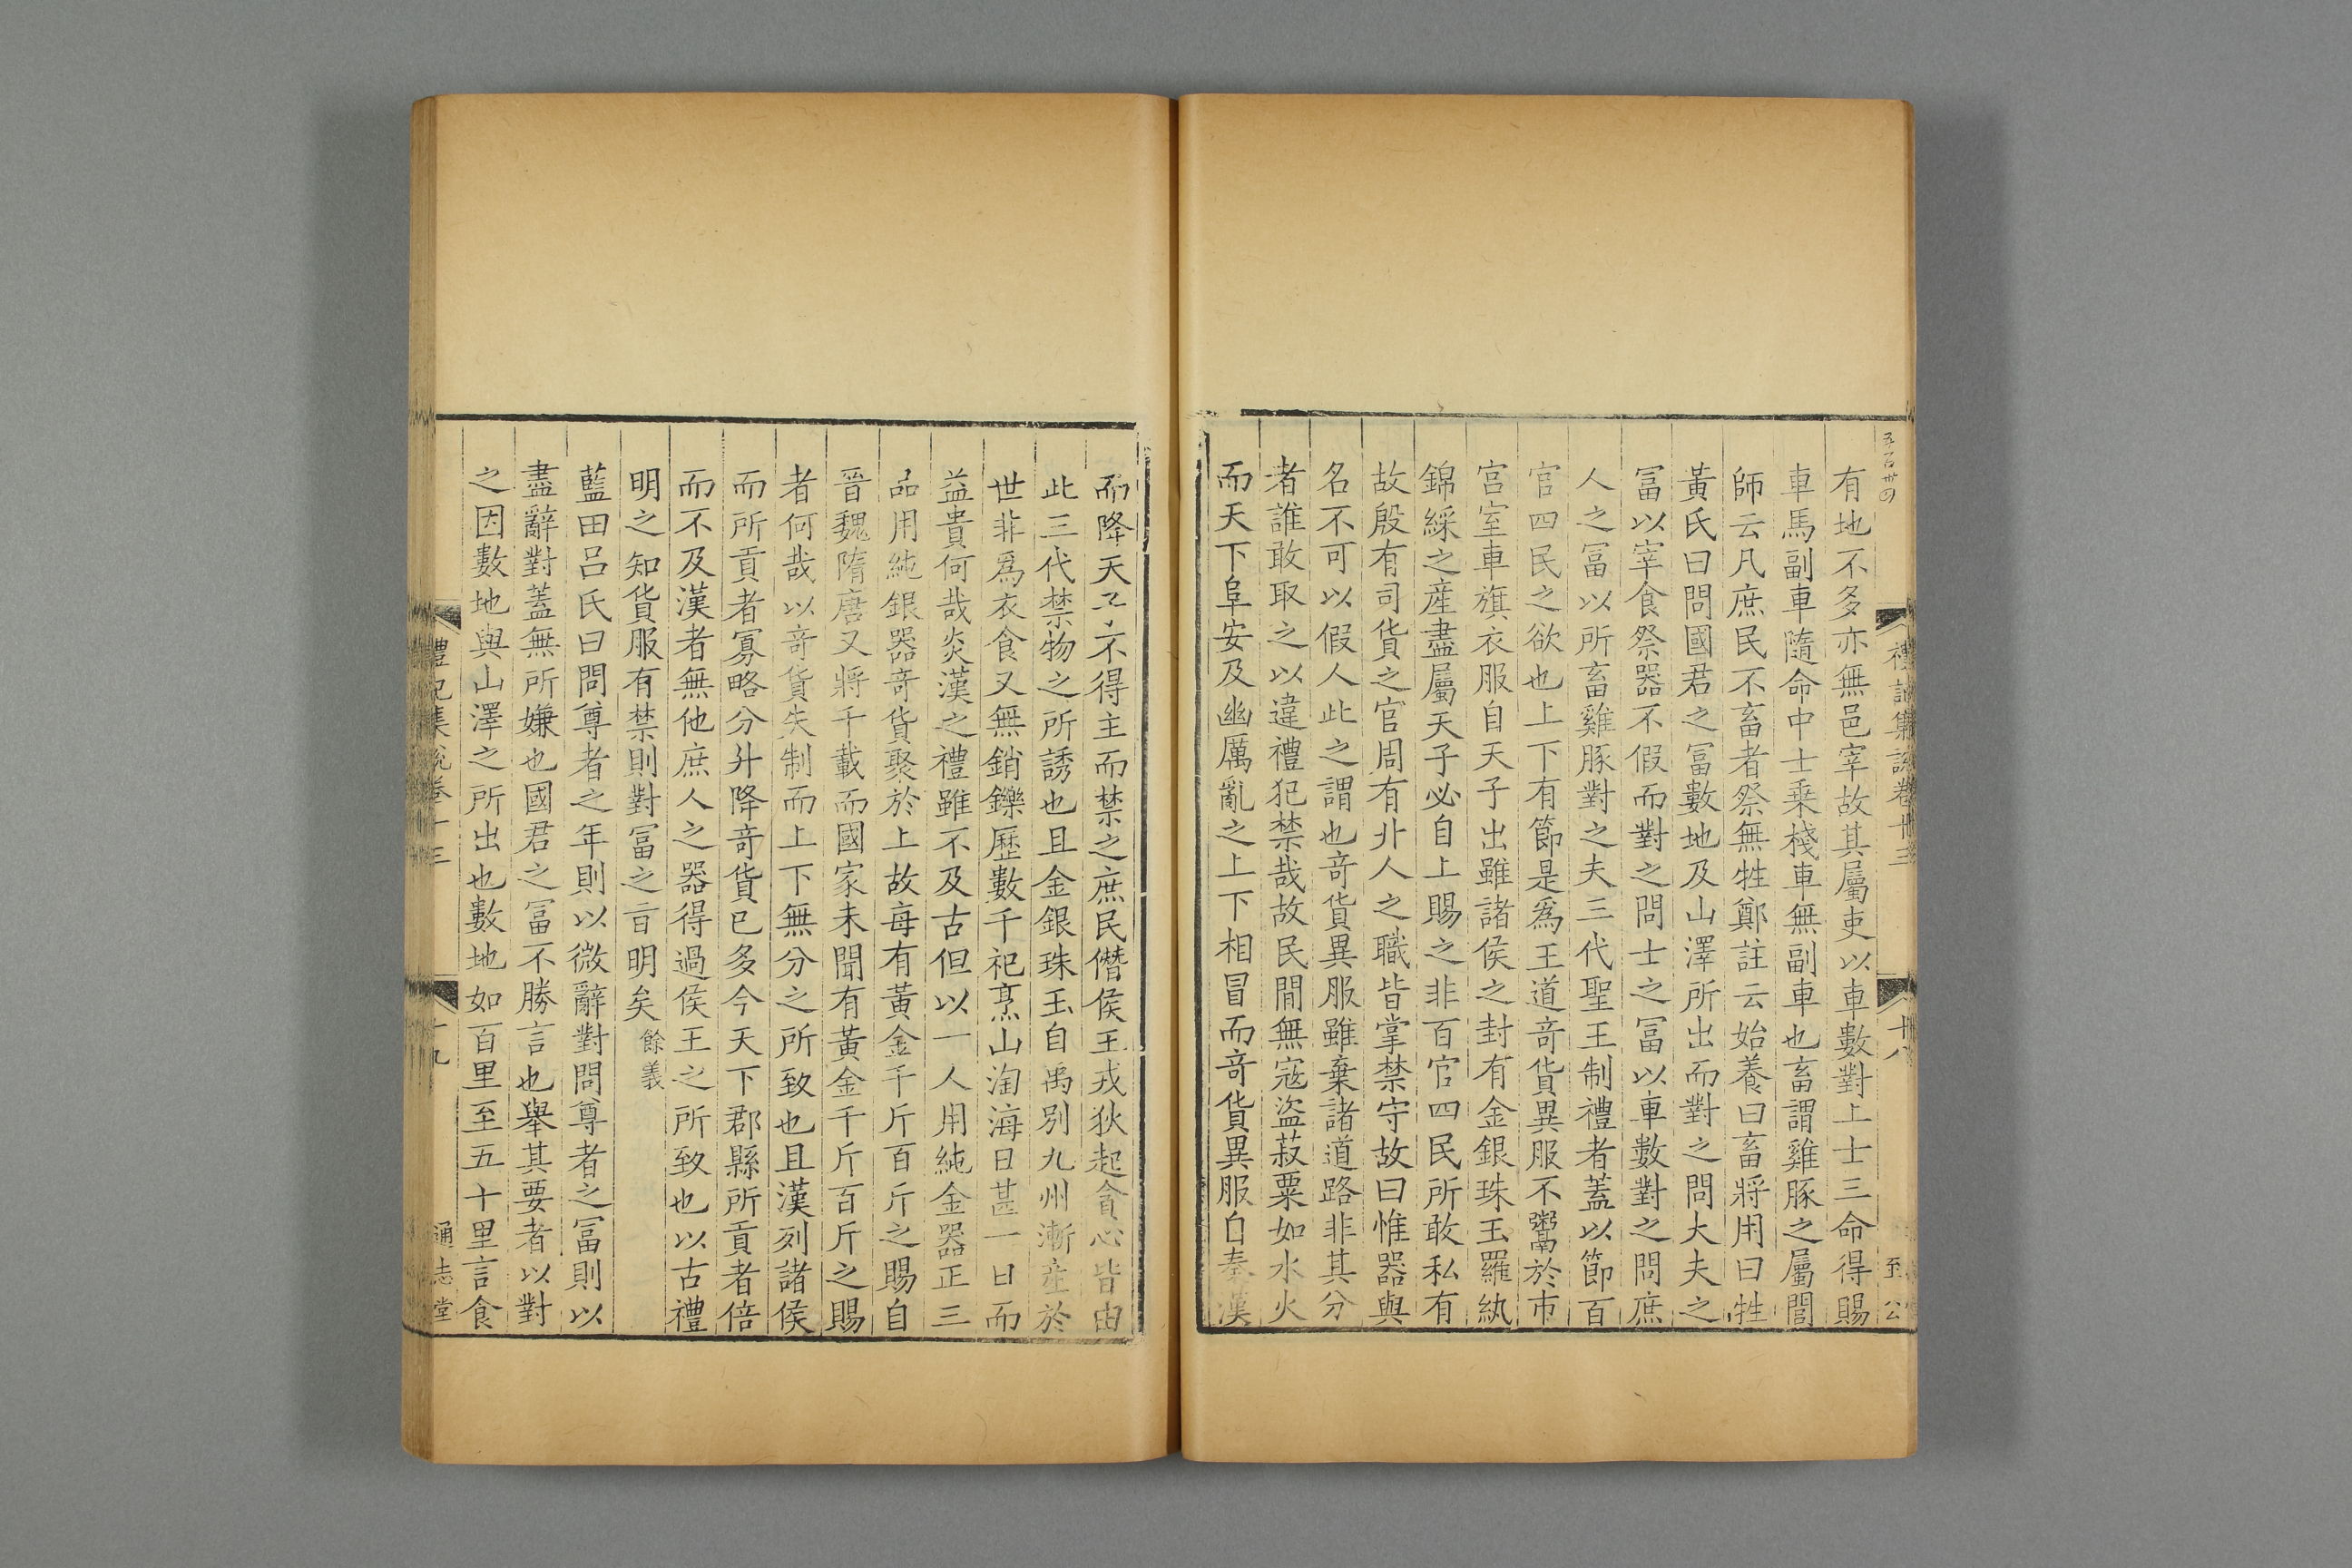 五百卅四
禮記集說卷十三
十八
至公
有地不多亦無邑宰故其屬吏以車數對上士三命得賜
車馬副車隨命中士乗棧車無副車也畜謂雞豚之屬閭
師云凡庶民不畜者祭無牲鄭註云始養曰畜將用曰牲
黃氏曰問國君之冨數地及山澤所出而對之問大夫之
冨以宰食祭器不假而對之問士之冨以車數對之問庶
人之冨以所畜雞豚對之夫三代聖王制禮者蓋以節百
官四民之欲也上下有節是爲王道竒貨異服不鬻於市
宫室車旗衣服自天子出雖諸侯之封有金銀珠玉羅紈
錦綵之產盡屬天子必自上賜之非百官四民所敢私有
故殷有司貨之官周有丱人之職皆掌禁守故曰惟器與
名不可以假人此之謂也竒貨異服雖棄諸道路非其分
者誰敢取之以違禮犯禁哉故民間無寇盜菽粟如水火
而天下阜安及幽厲亂之上下相冒而竒貨異服自秦漢
而降天子不得主而禁之庶民僭侯王戎狄起貪心皆由
此三代禁物之所誘也且金銀珠玉自禹别九州漸產於
世非爲衣食又無銷鑠歷數千祀烹山淘海日甚一日而
益貴何哉炎漢之禮雖不及古但以一人用純金器正三
品用純銀器竒貨聚於上故每有黃金千斤百斤之賜自
晉魏隋唐又將千載而國家未聞有黃金千斤百斤之賜
者何哉以竒貨失制而上下無分之所致也且漢列諸侯
而所貢者寡略分升降竒貨已多今天下郡縣所貢者倍
而不及漢者無他庶人之器得過侯王之所致也以古禮
明之知貨服有禁則對冨之旨明矣餘義
藍田吕氏曰問尊者之年則以微辭對問尊者之冨則以
盡辭對蓋無所嫌也國君之冨不勝言也舉其要者以對
之因數地與山澤之所出也數地如百里至五十里言食
禮記集說卷十三
十九
通志堂